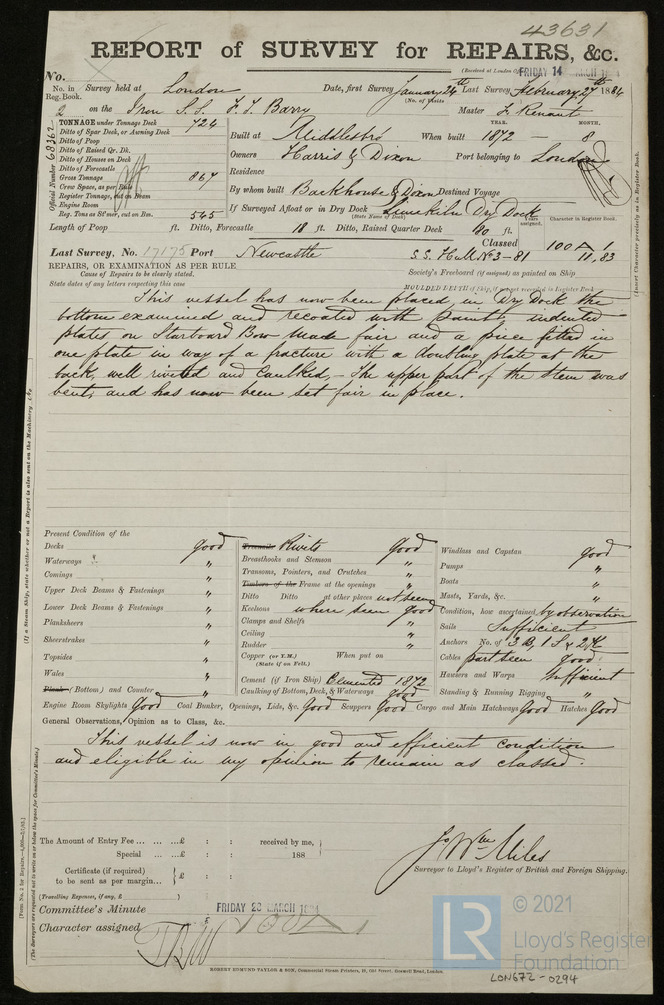 43631
REPORT of SURVEY for REPAIRS, &c.
(Received at London
FRIDAY 14 MARCH
No.
No. in Reg. Book. Survey held at London Date, first Survey January 24th Last Survey February 27th 1884
(No. of Visits
2 on the Iron S.S. F. T. Barry Master
TONNAGE under Tonnage Deck 724
Ditto of Spar Deck, or Awning Deck
Ditto of Poop
Ditto of Raised Qr. Dk.
Ditto of House on Deck
Ditto of Forecastle
Gross Tonnage 867
Crew Space, as per Rule
Register Tonnage, cut on Beam
Engine Room
Reg. Tons as St'mer, cut on Bm. 545
Official Number 68362
YEAR. MONTH.
Built at Middlesbro When built 1872 - 8
Owners Harris & Dixon Port belonging to London
Residence
By whom built Backhouse & Dixon Destined Voyage
If Surveyed Afloat or in Dry Dock Limekiln Dry Dock
(State Name of Dock)
Length of Poop ft. Ditto, Forecastle 18 ft. Ditto, Raised Quarter Deck 80 ft.
Years assigned. Character in Register Book.
Classed 100 A 1
Last Survey, No. 17175 Port Newcastle S.S. Hull No 3-81 11,83
REPAIRS, OR EXAMINATION AS PER RULE
Cause of Repairs to be clearly stated.
State dates of any letters respecting this case
Society's Freeboard (if assigned) as painted on Ship
MOULDED DEPTH if Ship, if not yet recorded in Register Book
This vessel has now been placed in Dry Dock the
bottom examined and recoated with paint, indented
plates on Starboard Bow made fair and a piece fitted in
one plate in way of a fracture with a doubling plate at the
back, well riveted and caulked, - The upper part of the Stem was
bent, and has now been set fair in place.
Present Condition of the
Decks Good
Waterways "
Comings "
Upper Deck Beams & Fastenings "
Lower Deck Beams & Fastenings "
Planksheers "
Sheerstrakes "
Topsides "
Wales "
Plank (Bottom) and Counter "
Treenails Rivets Good
Breasthooks and Stemson "
Transoms, Pointers, and Crutches "
Timbers of the Frame at the openings "
Ditto Ditto at other places not seen
Keelsons where seen good
Clamps and Shelfs "
Ceiling "
Rudder "
Copper (or Y.M.) When put on
(State if on Felt.)
Cement (if Iron Ship) Cemented 1872
Caulking of Bottom, Deck, & Waterways good
Windlass and Capstan good
Pumps "
Boats "
Masts, Yards, &c. "
Condition, how ascertained by observation
Sails Sufficient
Anchors No. of 3 B, 1 S & 2 K
Cables part seen good
Hawsers and Warps Sufficient
Standing & Running Rigging "
Engine Room Skylights Good Coal Bunker, Openings, Lids, &c. Good Scuppers Good Cargo and Main Hatchways Good Hatches Good
General Observations, Opinion as to Class, &c.
This vessel is now in good and efficient condition
and eligible in my opinion to remain as classed.
The Amount of Entry Fee ... ... ...£ : : received by me,
Special ... ...£ : : 188
Certificate (if required) to be sent as per margin... £ : :
(Travelling Expenses, if any, £ )
Jo Wm Miles
Surveyor to Lloyd's Register of British and Foreign Shipping.
Committee's Minute FRIDAY 28 MARCH 1884
Character assigned 100A1
ROBERT EDMUND TAYLOR & SON, Commercial Steam Printers, 19, Old Street, Goswell Road, London.
(Insert Character precisely as in Register Book.
(If a Steam Ship, state whether or not a Report is also sent on the Machinery
(The Surveyors are requested not to write on or below the space for Committee's Minute.)
LR
© 2021
Lloyd's Register
Foundation
LON672-0294